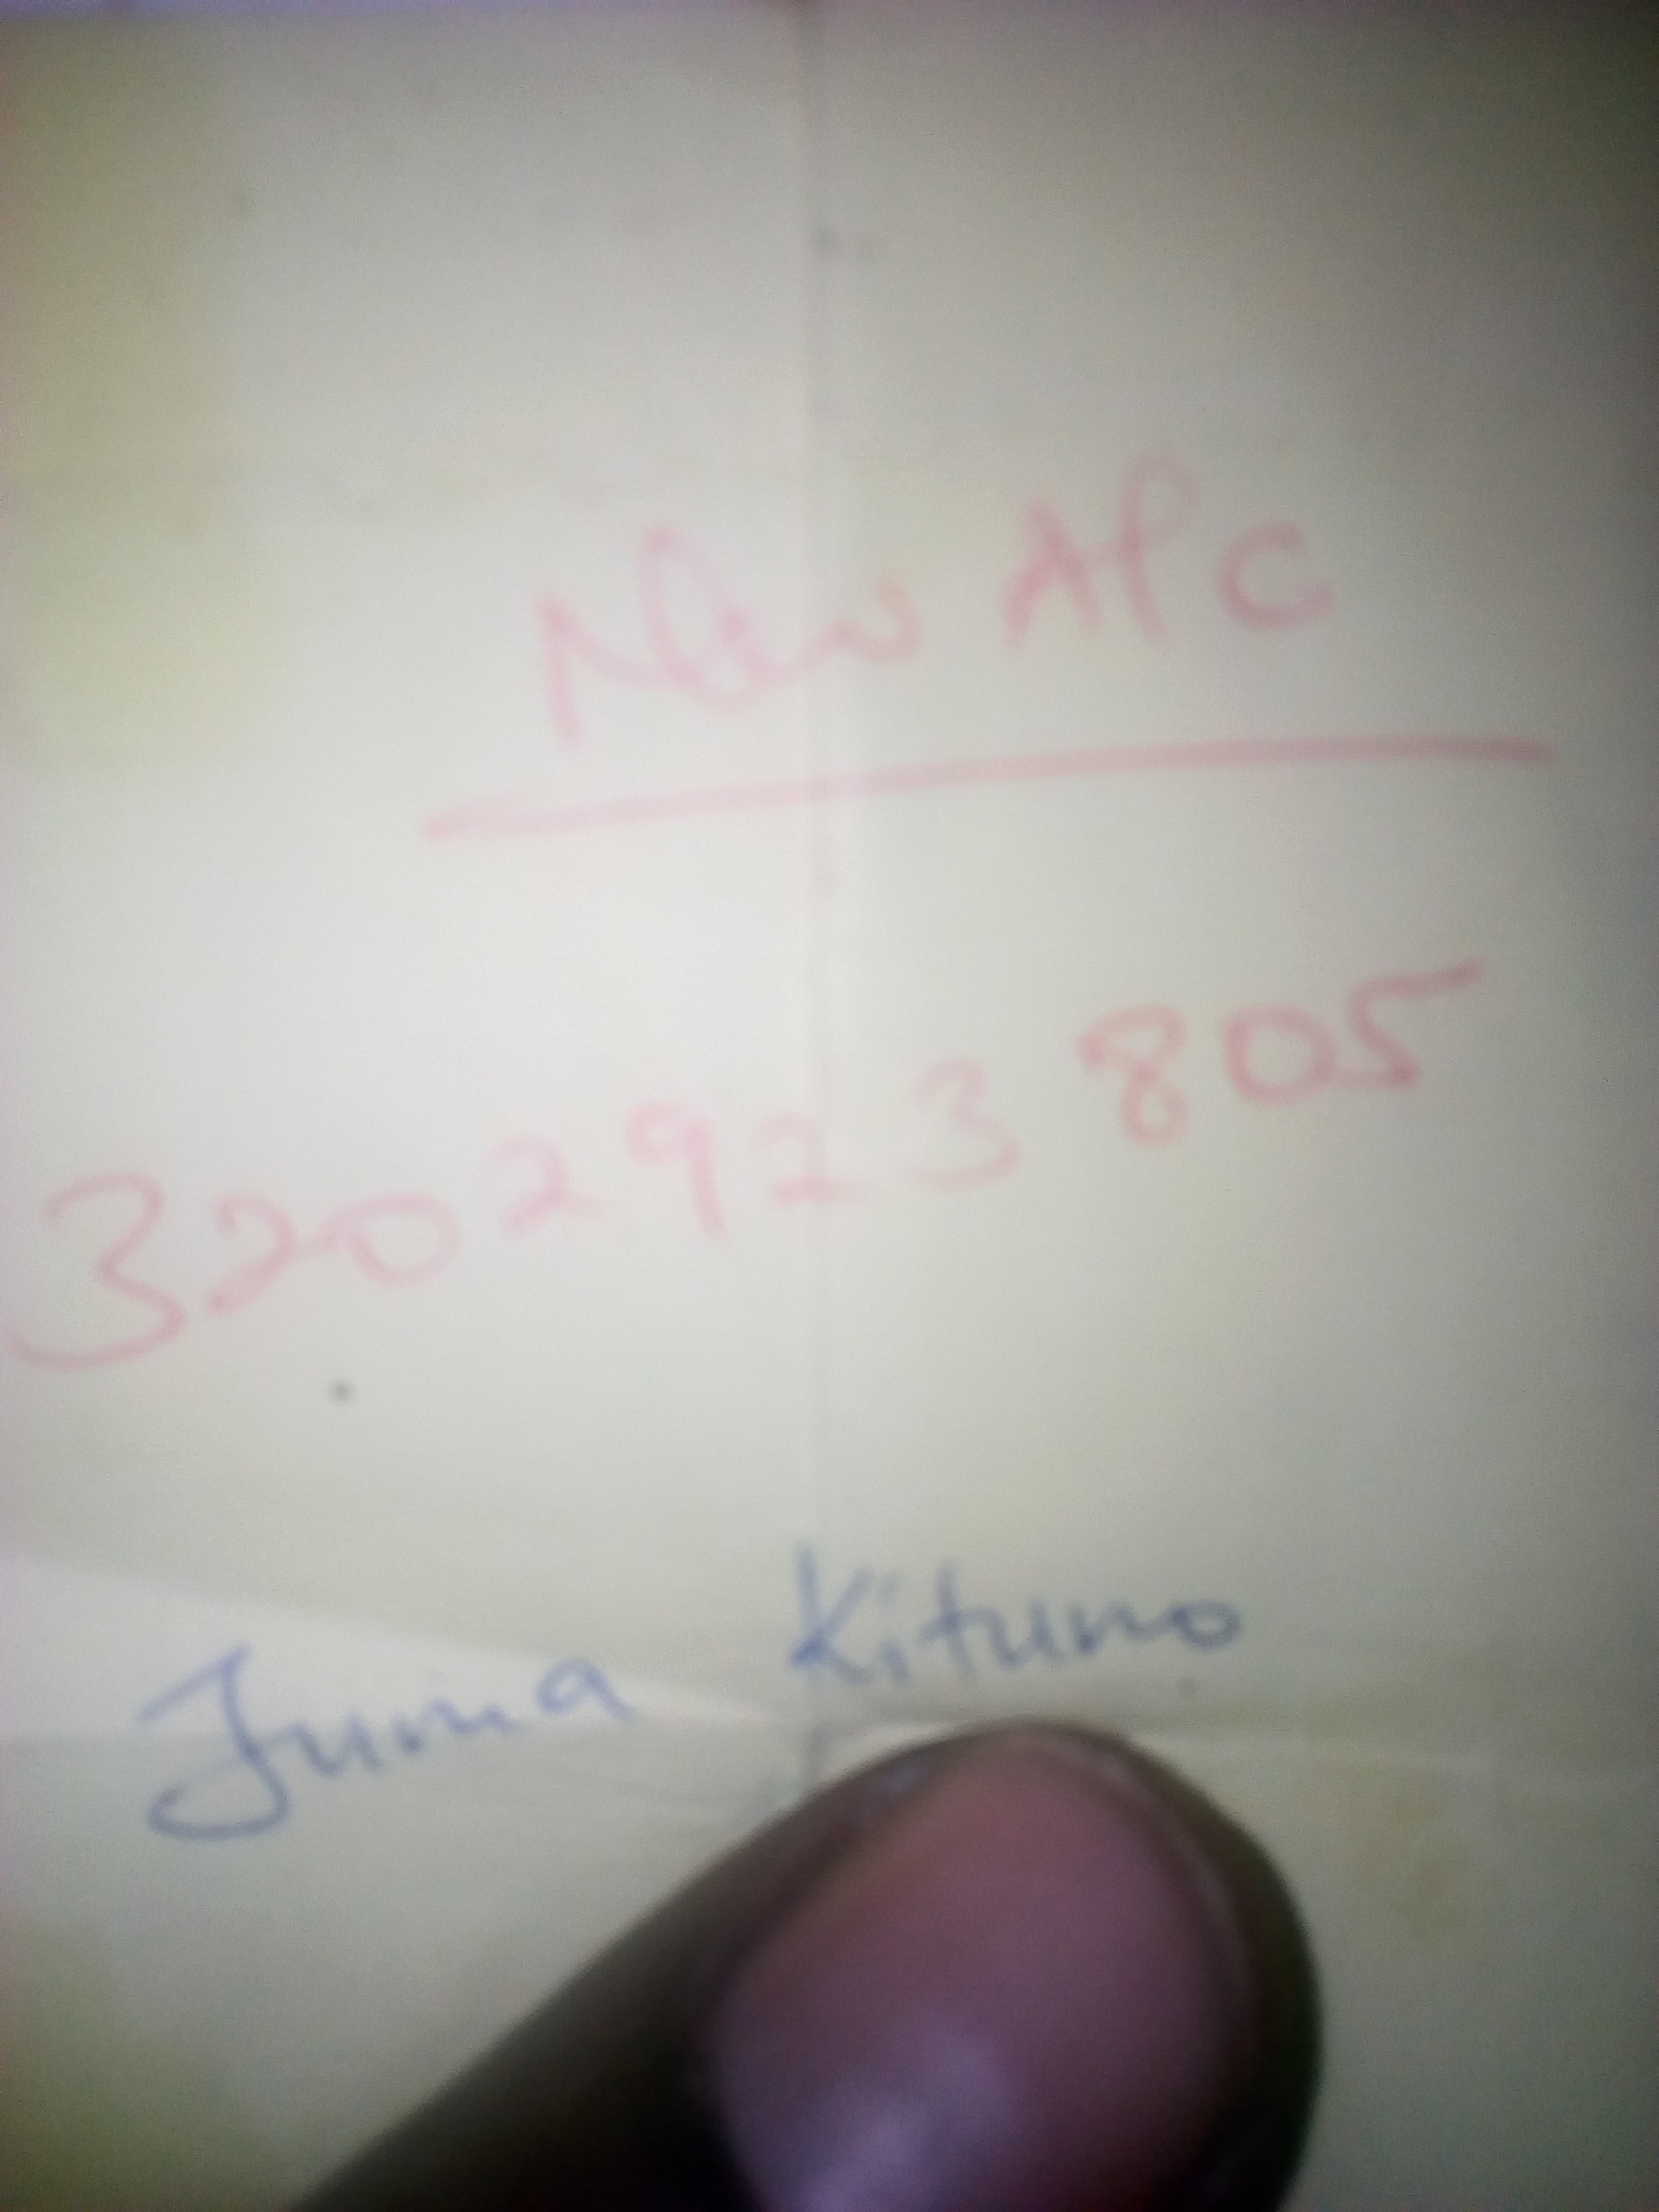 New APC
3202923805
Juma Kituno